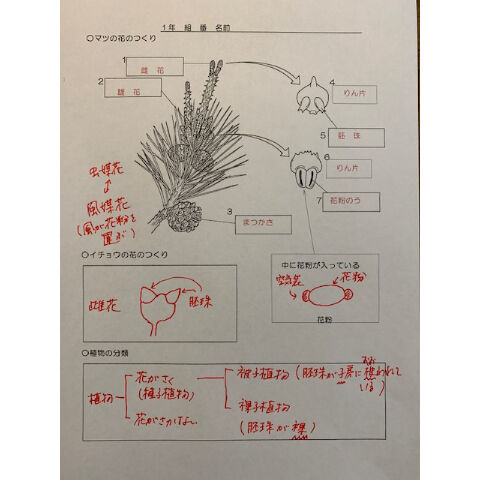 1年 組 番 名前
○マツの花のつくり
1 雌 花
2 雄 花
4 りん片
5 胚 珠
6 りん片
7 花粉のう
3 まつかさ
虫媒花
↕
風媒花
(風が花粉を
運ぶ)
中に花粉が入っている
空気袋
花粉
花粉
○イチョウの花のつくり
雌花
胚珠
○植物の分類
植物
花がさく
(種子植物)
花がさかない
被子植物 (胚珠が子房に被われて
いる)
裸子植物
(胚珠が裸)